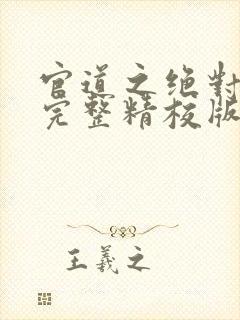 官道之绝對
完整精校版
王羲之